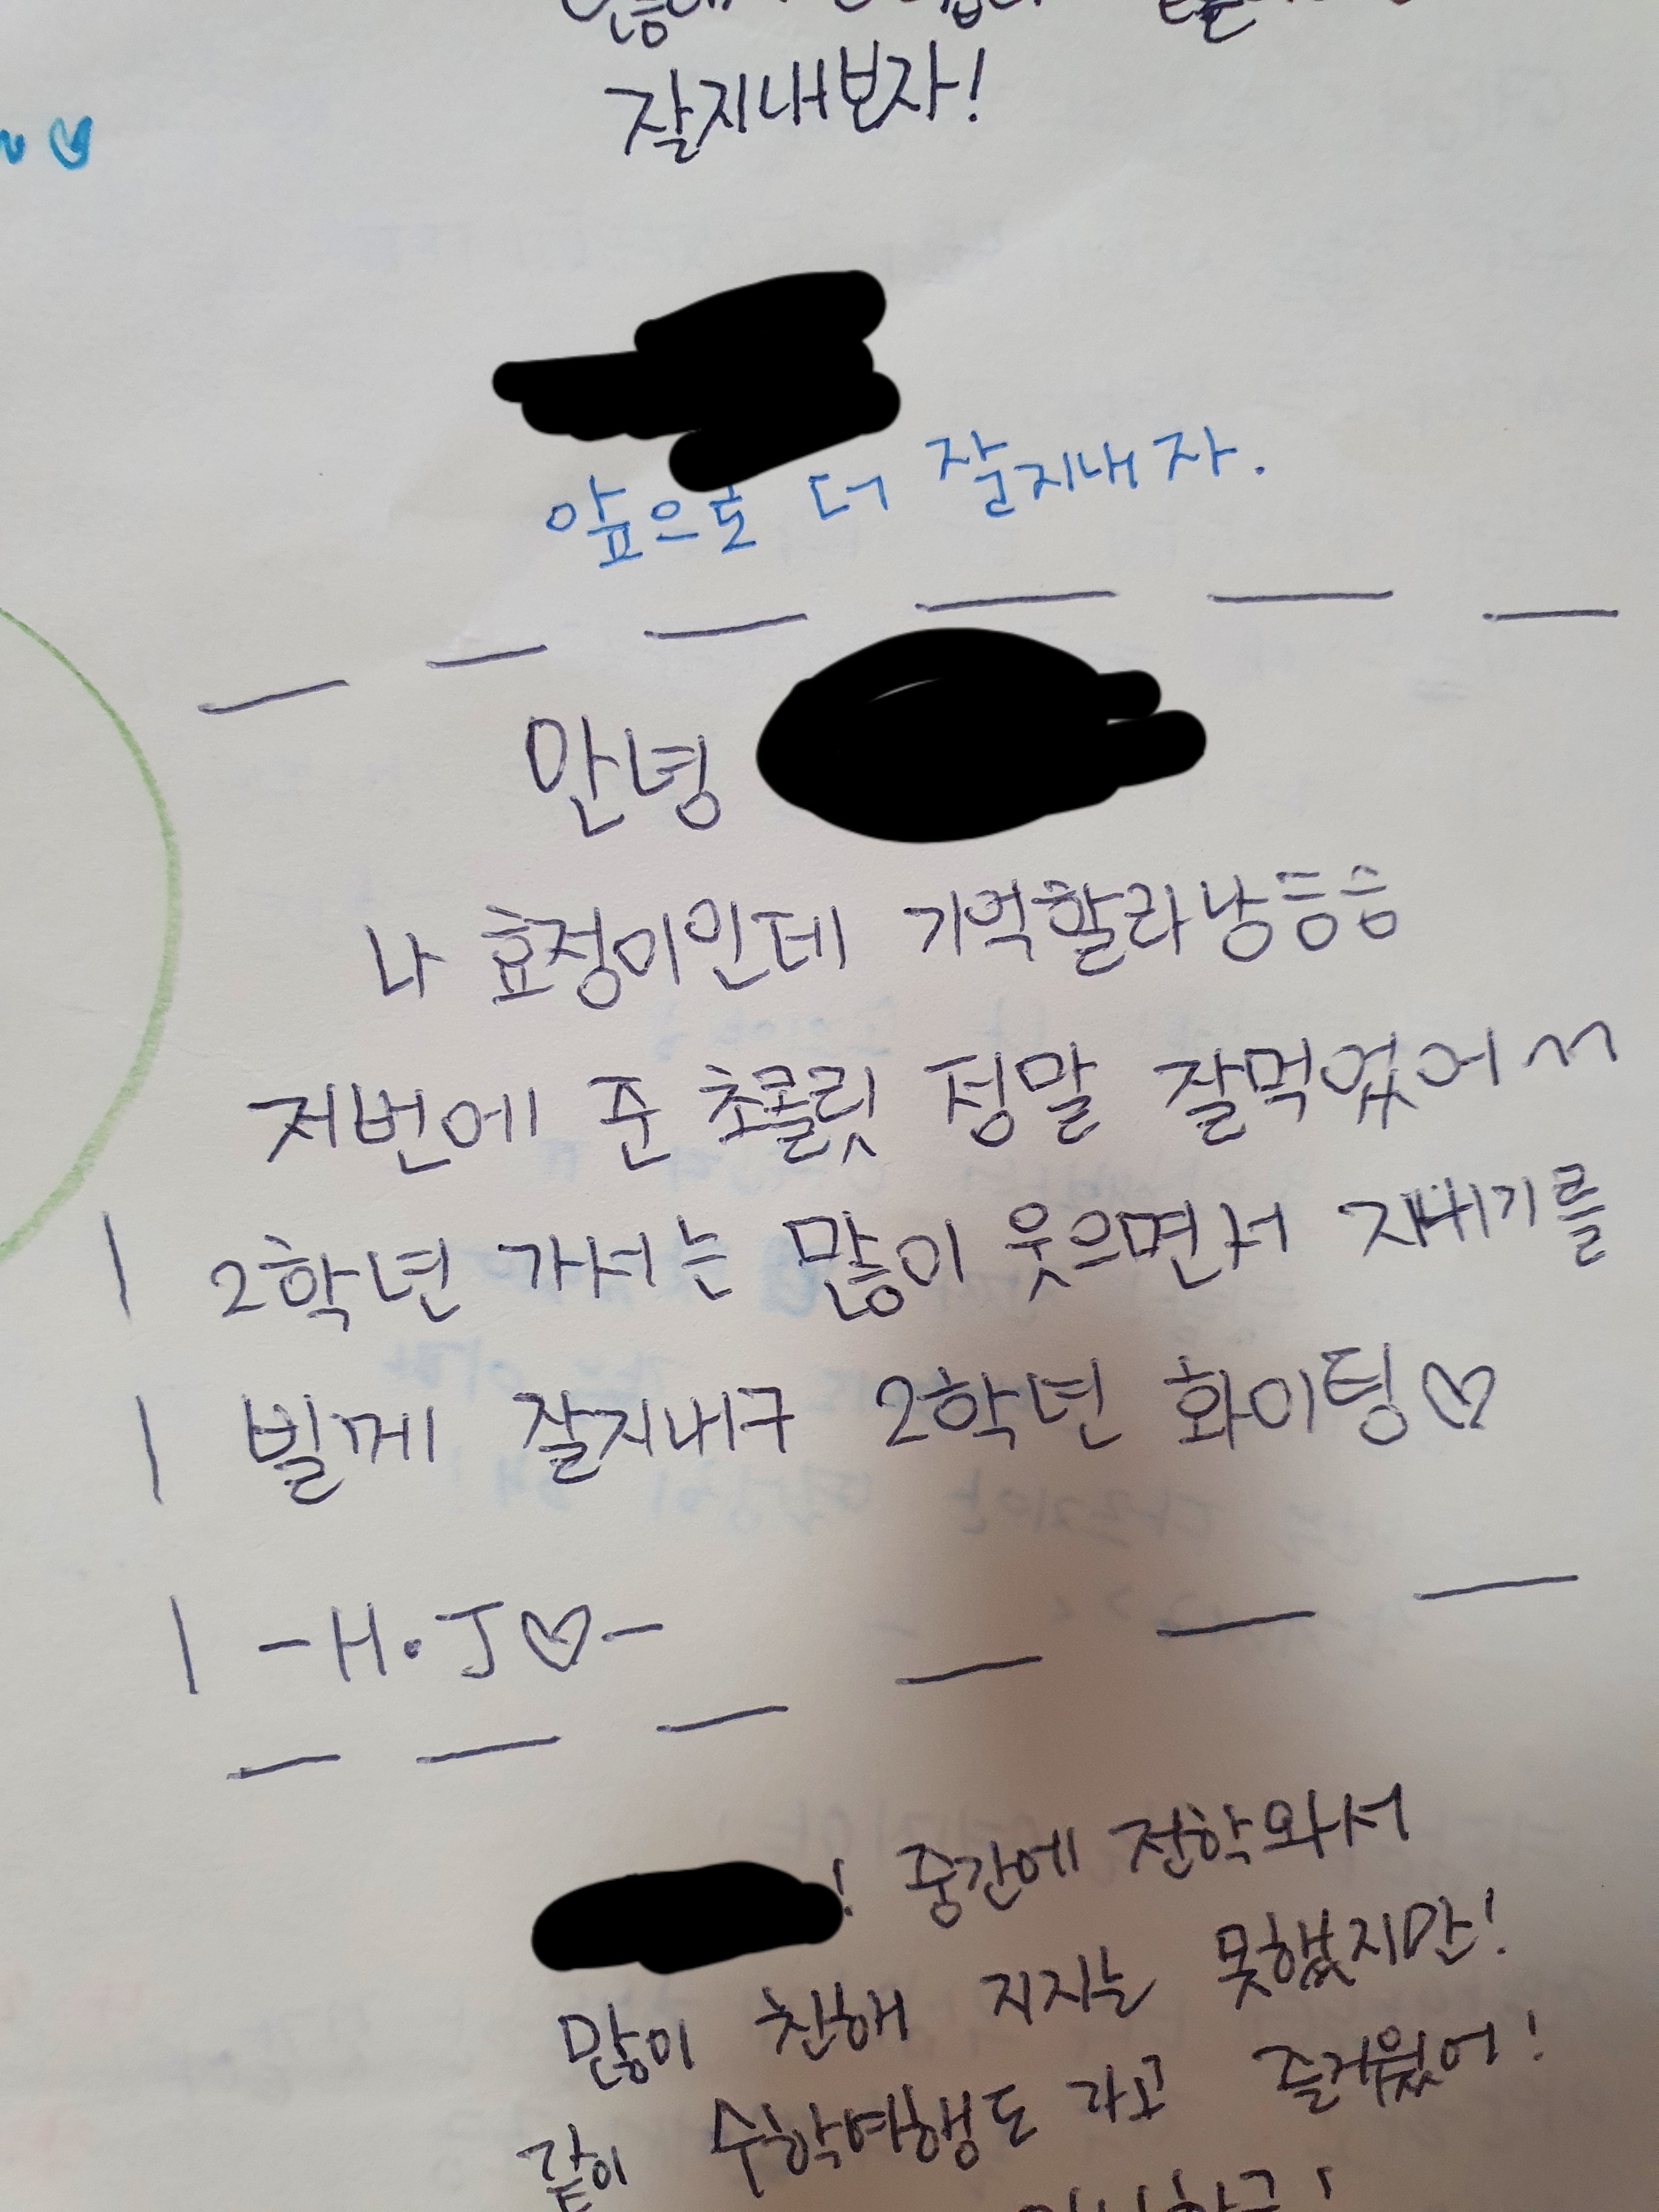 잘지내보자!
앞으로 더 잘지내자.
안녕
나 효정이인데 기억할라낭흐흐
저번에 준 초콜릿 정말 잘먹었어~~
2학년 가서는 많이 웃으면서 지내기를
빌게 잘지내구 2학년 화이팅♡
-H.J♡-
! 중간에 전학와서
많이 친해 지지는 못했지만!
같이 수학여행도 가고 즐거웠어!